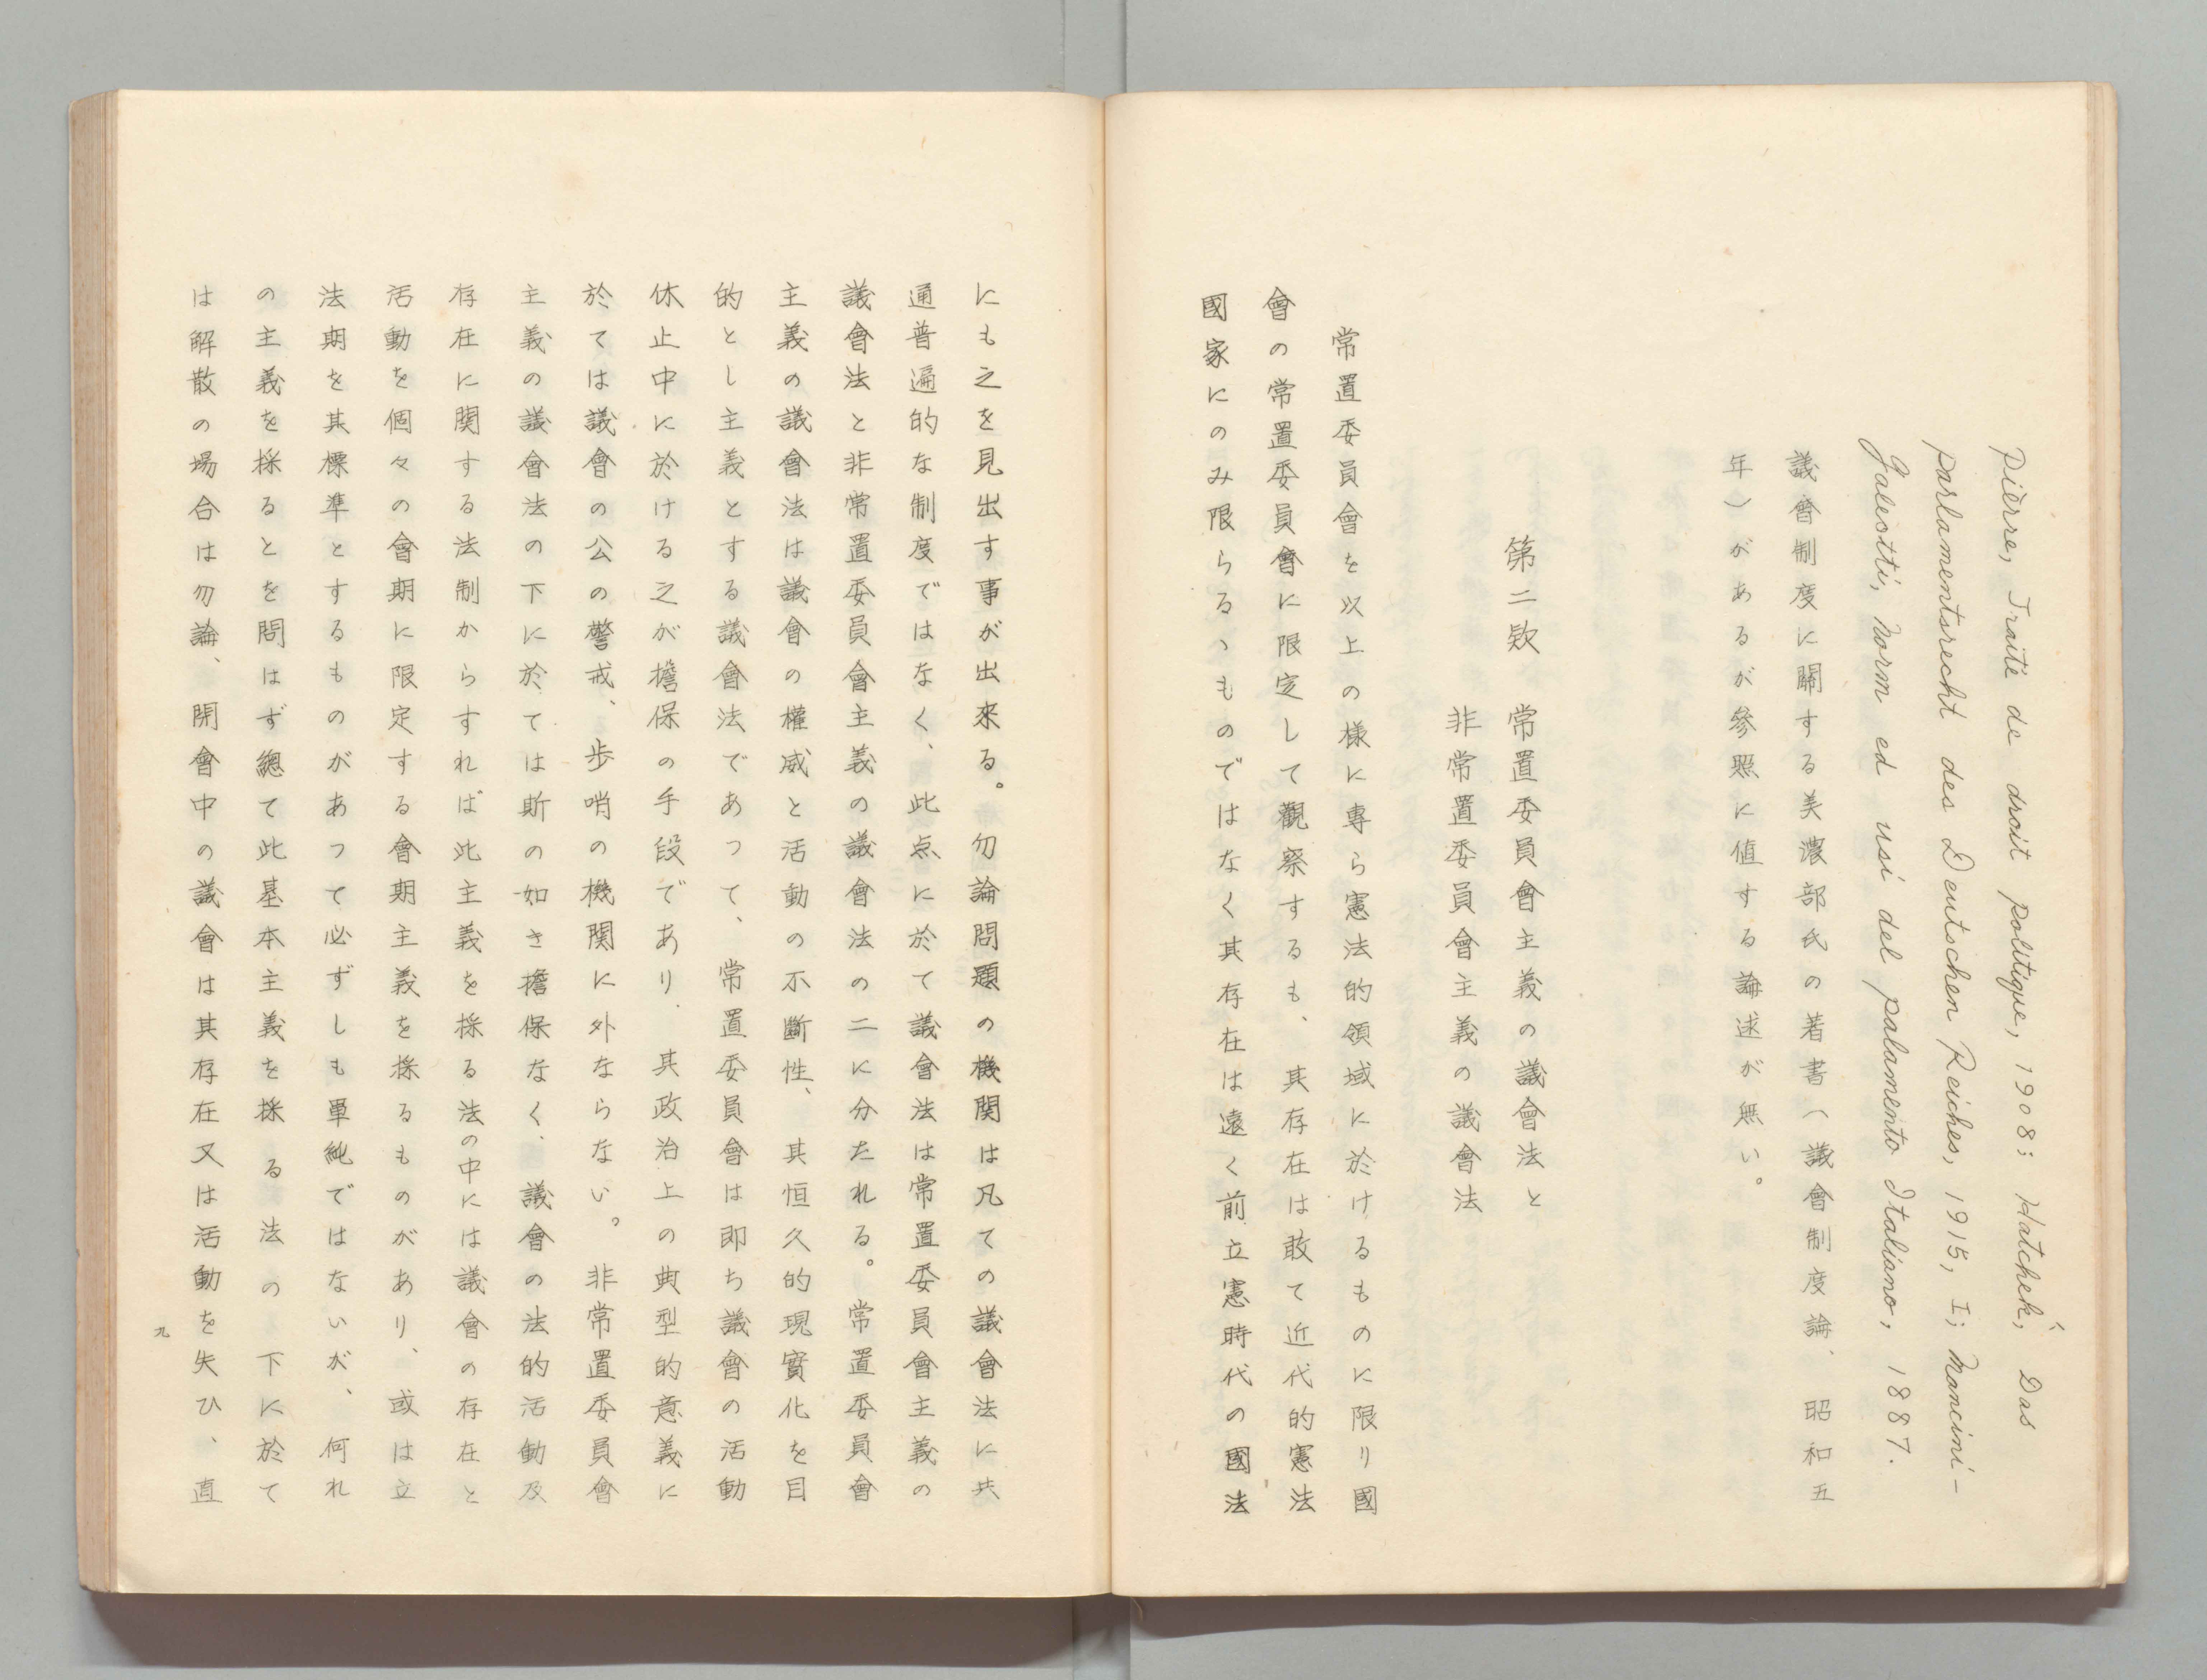 Pièrre, Traité de droit politique, 1908; Hatchek, Das
parlamentsrecht des Deutschen Reiches, 1915, I; Mancini-
Galeotti, Norm ed usi del palamento Italiano, 1887.
議會制度に關する美濃部氏の著書（議會制度論、昭和五
年）があるが參照に値する論述が無い。
第二欵　常置委員會主義の議會法と
非常置委員會主義の議會法
常置委員會を以上の様に專ら憲法的領域に於けるものに限り國
會の常置委員會に限定して觀察するも、其存在は敢て近代的憲法
國家にのみ限らるヽものではなく其存在は遠く前立憲時代の國法
にも之を見出す事が出來る。勿論問題の機関は凡ての議會法に共
通普遍的な制度ではなく、此点に於て議會法は常置委員會主義の
議會法と非常置委員會主義の議會法の二に分たれる。常置委員會
主義の議會法は議會の權威と活動の不斷性、其恒久的現實化を目
的とし主義とする議會法であつて、常置委員會は即ち議會の活動
休止中に於ける之が擔保の手段であり、其政治上の典型的意義に
於ては議會の公の警戒、歩哨の機関に外ならない。非常置委員會
主義の議會法の下に於ては斯の如き擔保なく、議會の法的活動及
存在に関する法制からすれば此主義を採る法の中には議會の存在と
活動を個々の會期に限定する會期主義を採るものがあり、或は立
法期を其標準とするものがあつて必ずしも單純ではないが、何れ
の主義を採るとを問はず總て此基本主義を採る法の下に於て
は解散の場合は勿論、開會中の議會は其存在又は活動を失ひ、直
九